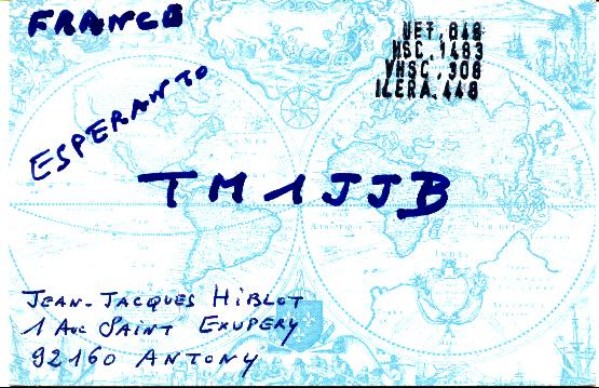 FRANCE
UFT.848
HSC.1483
VHSC.308
ILERA.448
ESPERANTO
TM1JJB
JEAN-JACQUES HIBLOT
1 Ave SAINT EXUPERY
92160 ANTONY